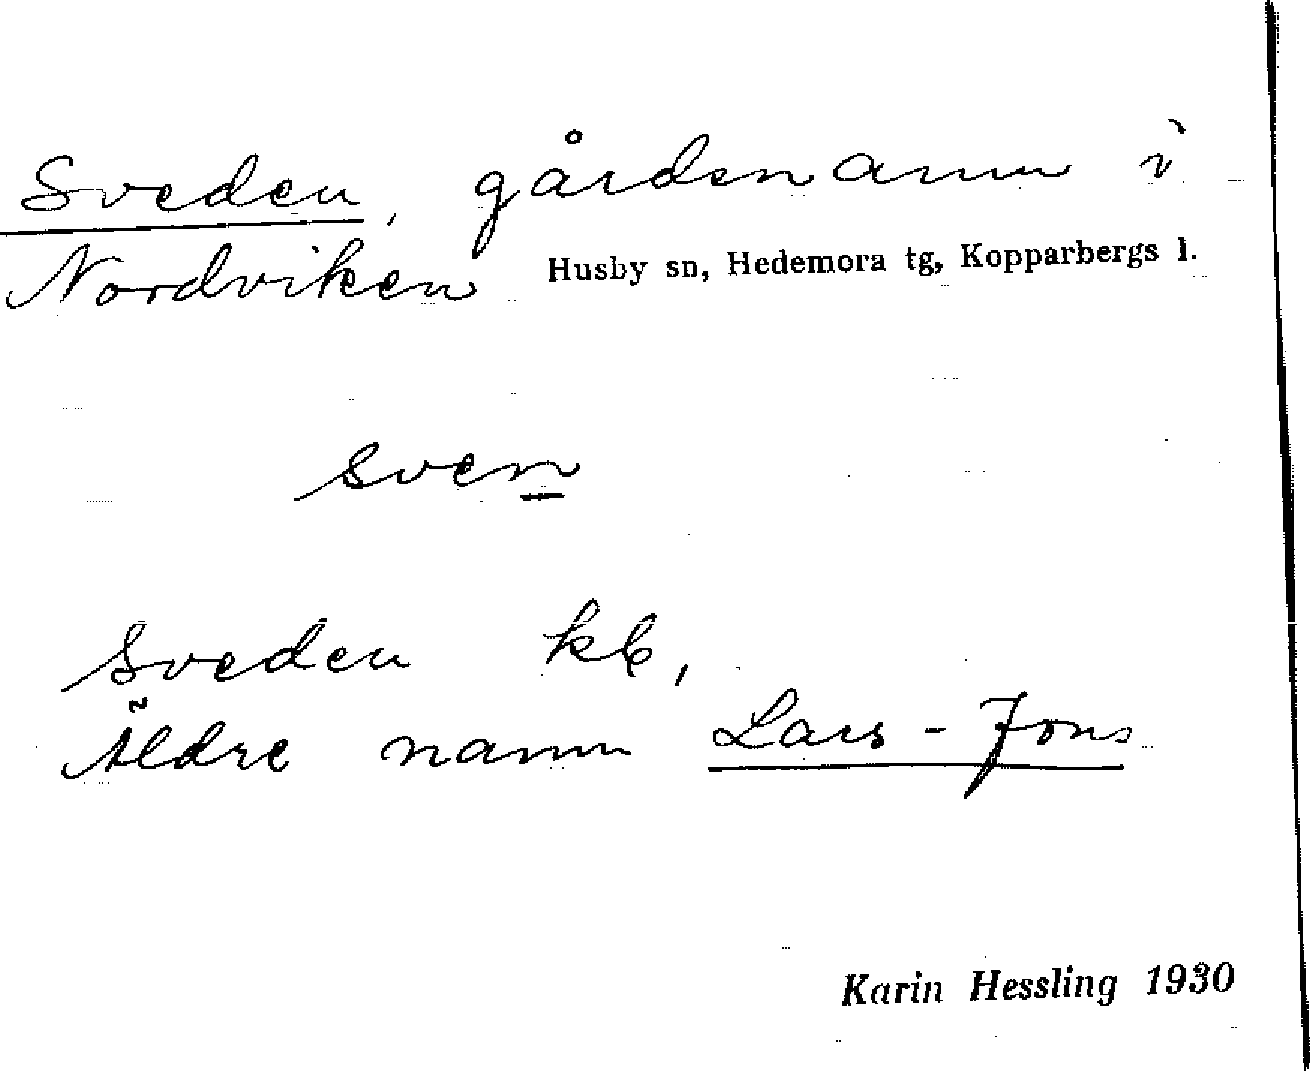 Sveden, gårdsnamn i
Nordviken Husby sn, Hedemora tg, Kopparbergs l.
sven
Sveden kb,
Äldre namn Lars-Jons
Karin Hessling 1930